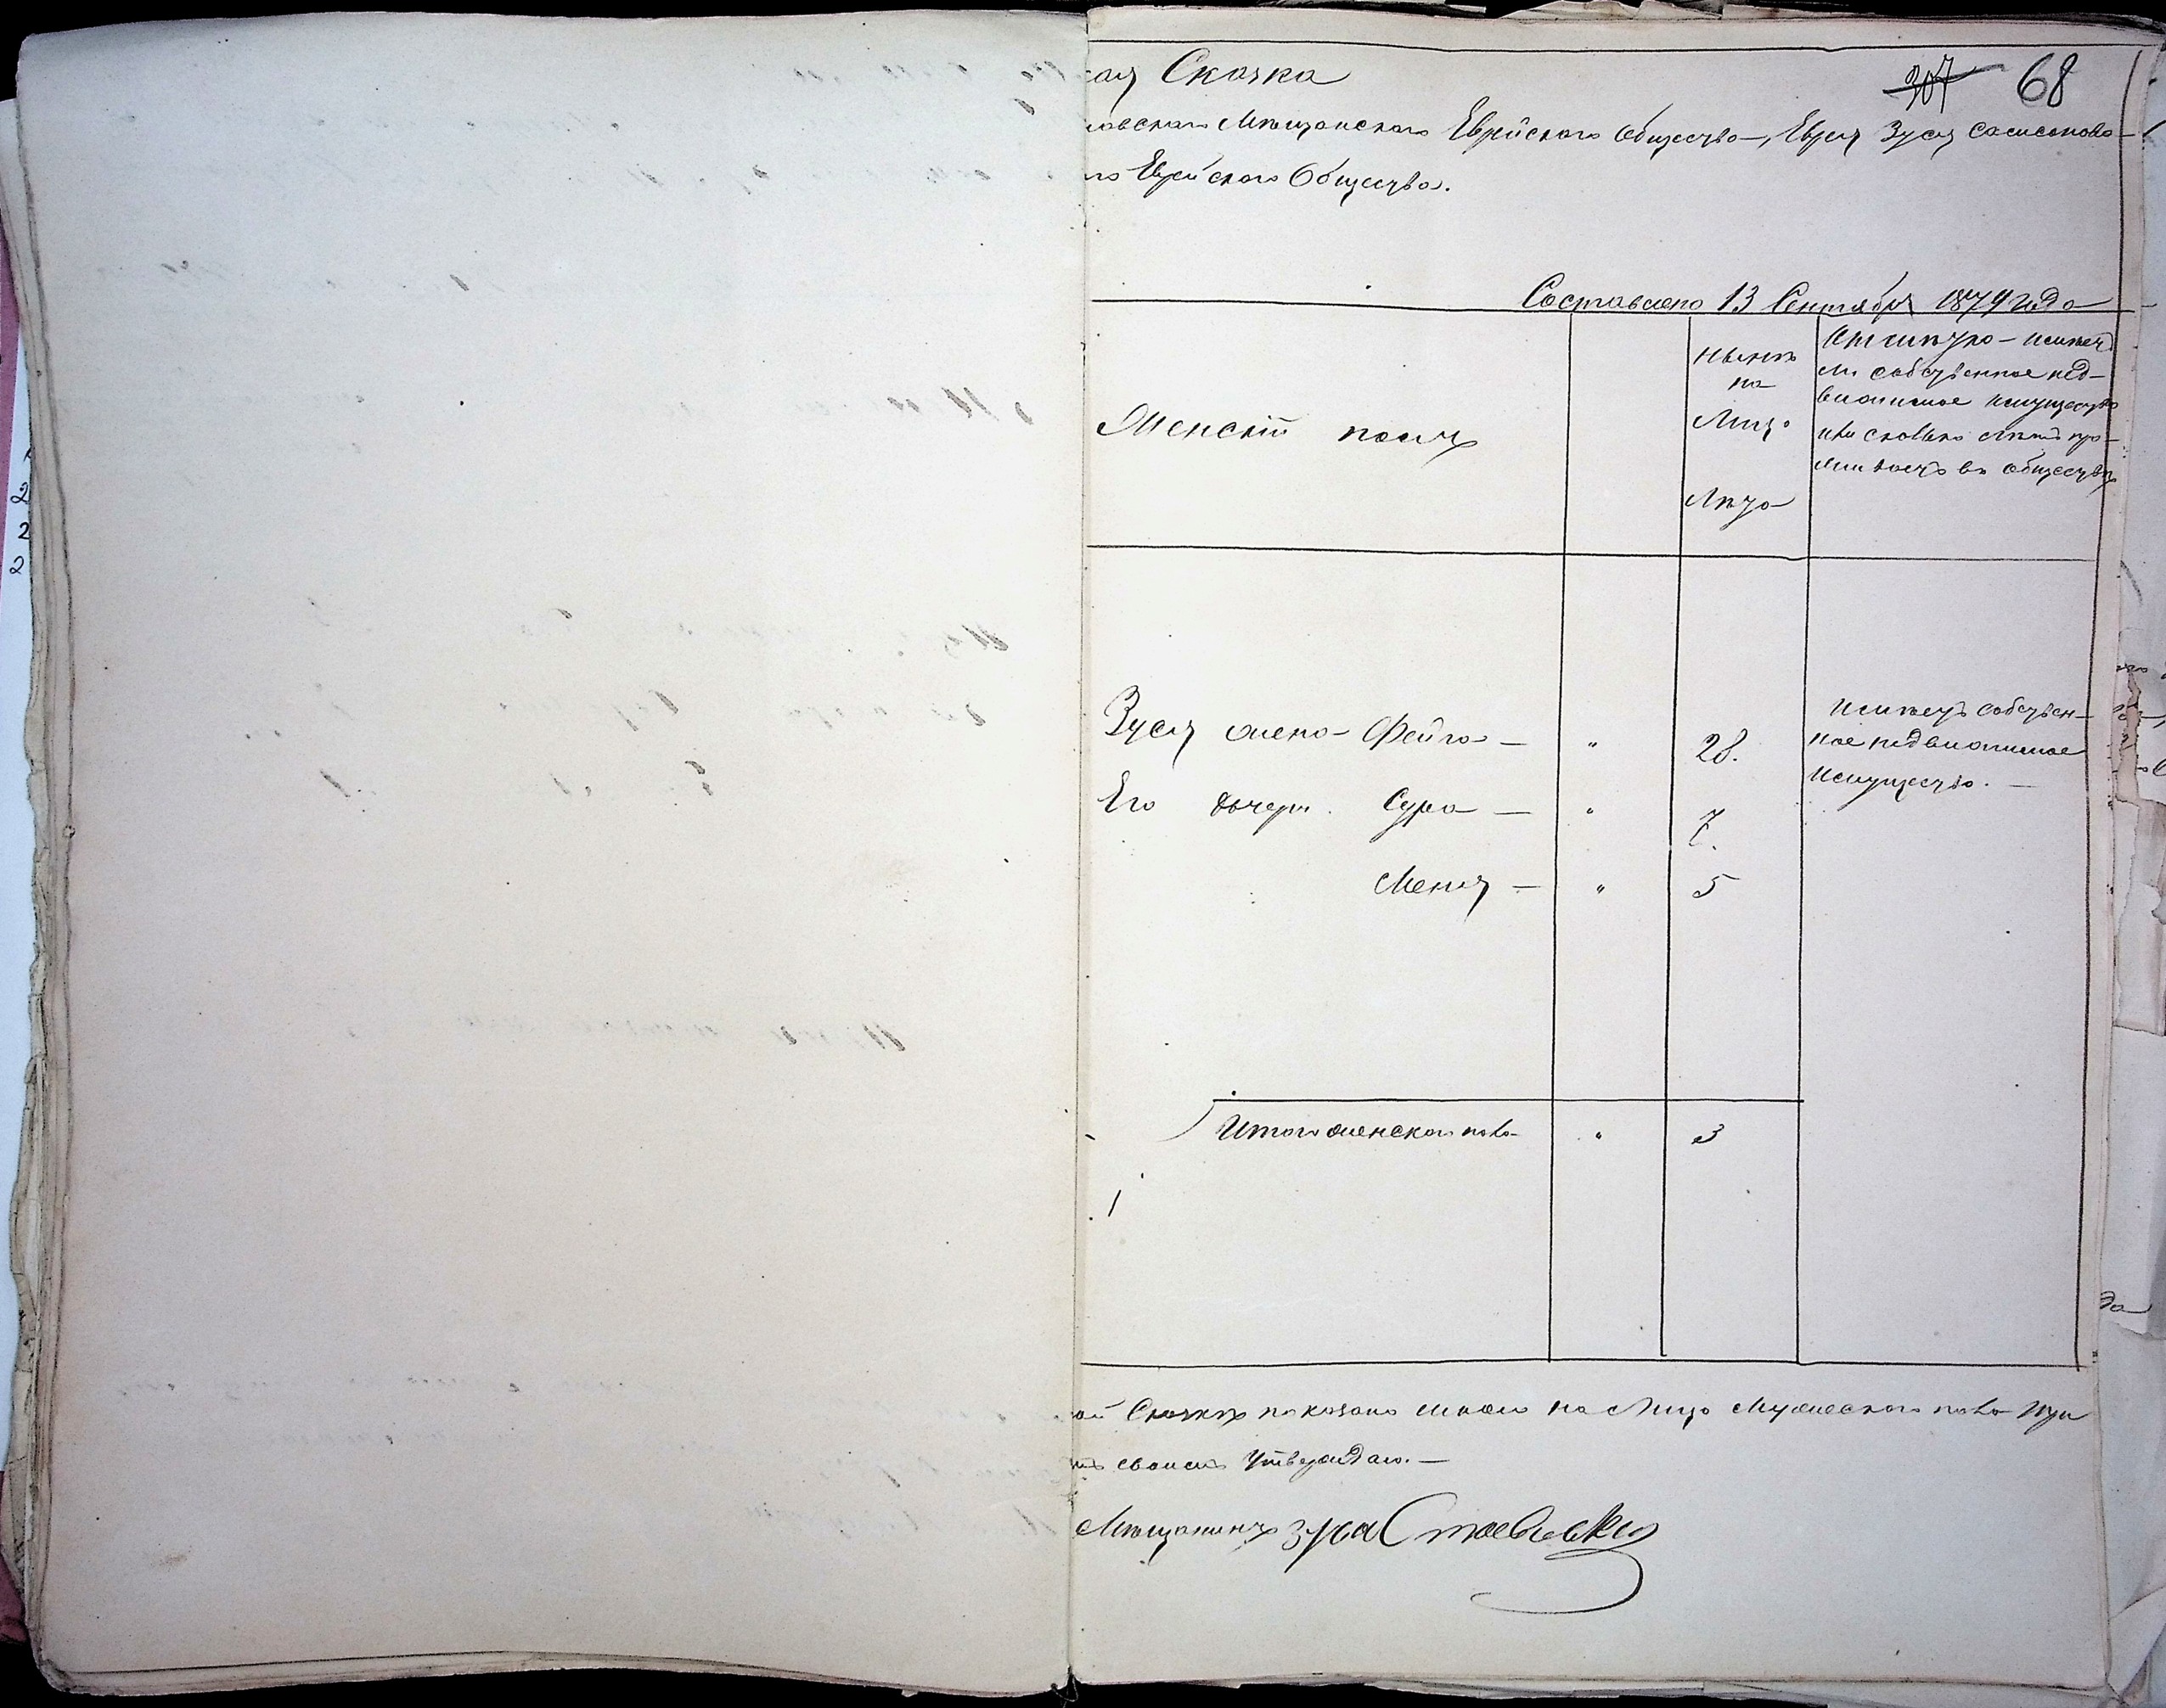 ая Сказка
307 68
ловскаго Мѣщанскаго Еврейскаго Общества, Еврея Зуся
го Еврейскаго Общества.
Составлена 13 Сентября 1874 года
Женскій полъ
нынѣ
на
Лицо
Лѣта
имѣет
ли собственное нед-
вижимое имущество
или сколько лѣтъ про-
живаетъ въ обществѣ
Зуся жена Фейга — " 28.
имѣетъ собствен-
ное недвижимое
имущество. —
Его дочери. Сура — " 7.
Меня — " 5
Итого женскаго пола " 3
1
ой Сказкѣ показано мною на Лицо Мужескаго пола три
своимъ Утверждаю. —
Мѣщанинъ Зуся
да
2
2
2